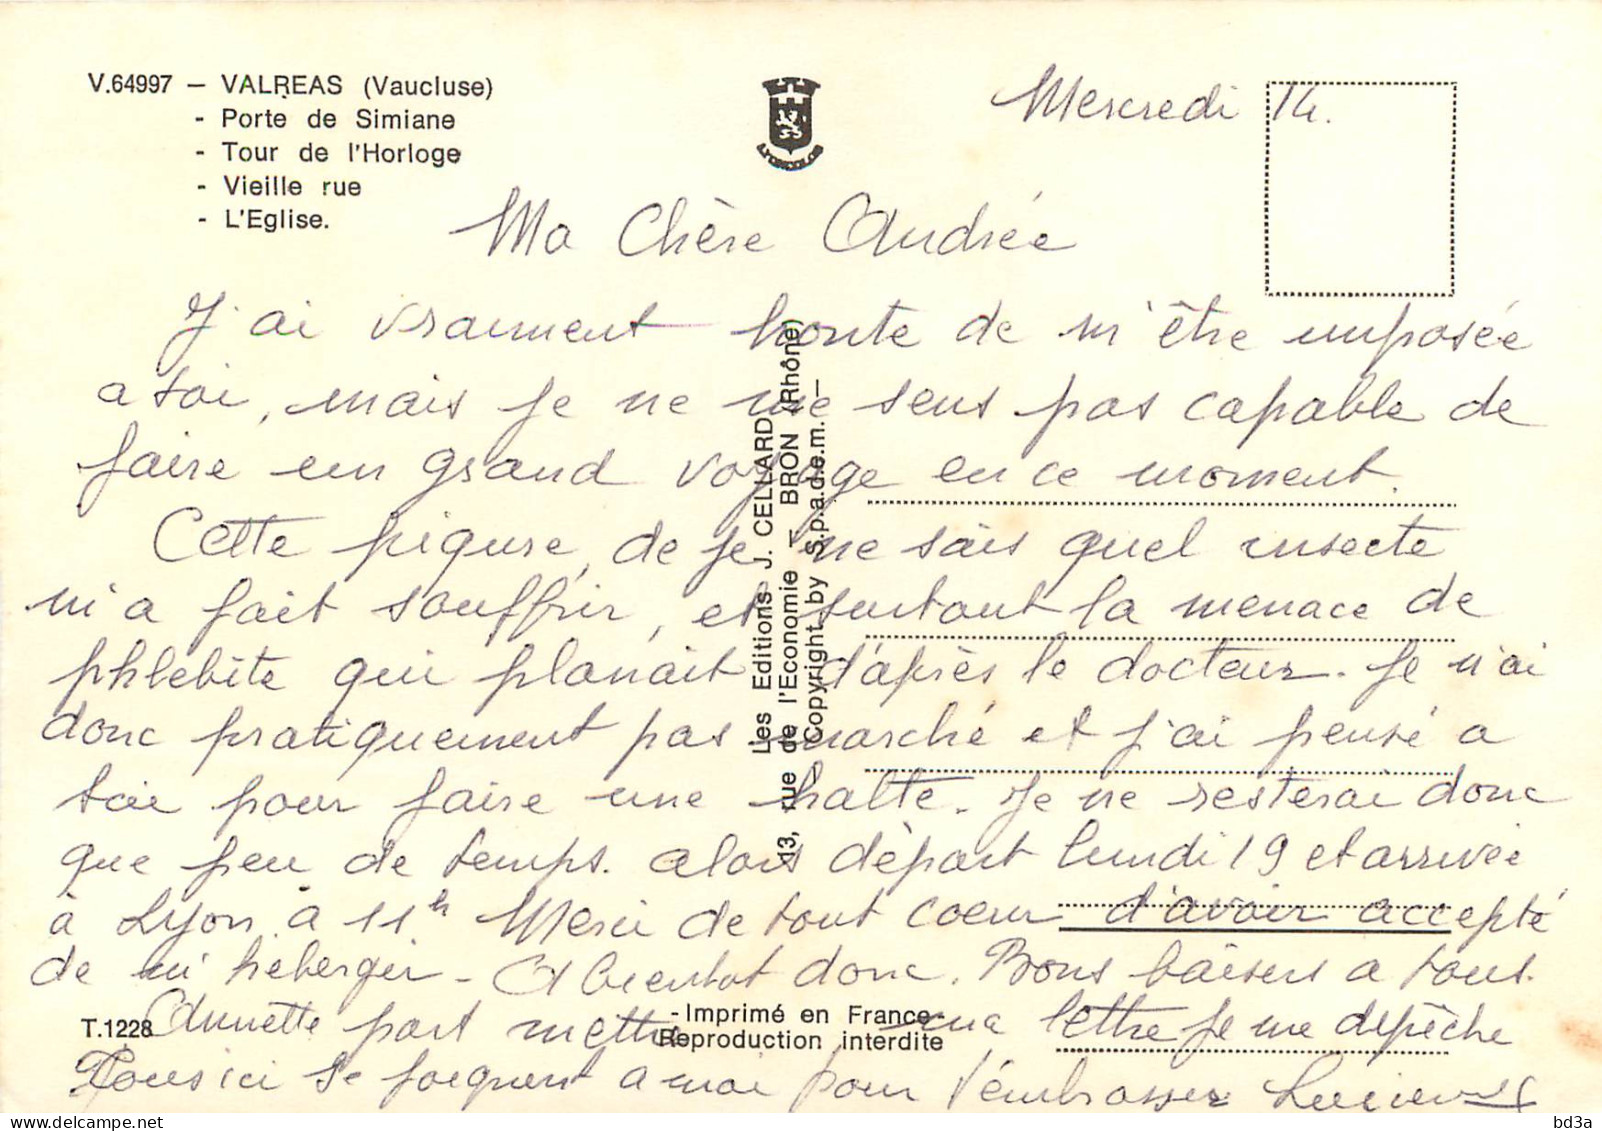 V.64997 – VALREAS (Vaucluse)
- Porte de Simiane
- Tour de l'Horloge
- Vieille rue
- L'Eglise.
LYONCOLOR
Mercredi 14.
Ma Chère Andrée
J'ai vraiment honte de m'être imposée
a toi, mais je ne me sens pas capable de
faire un grand voyage en ce moment.
Cette piqure, de je ne sais quel insecte
m'a fait souffrir, et surtout la menace de
phlebite qui planait d'après le docteur. Je n'ai
donc pratiquement pas marché et j'ai pensé a
toi pour faire une halte. Je ne resterai donc
que peu de temps. alors départ lundi 19 et arrivée
à Lyon à 11h Merci de tout coeur d'avoir accepté
de m'heberger - A bientot donc. Bons baisers a tous.
Annette part mettre ma lettre je me depêche
Tous ici se joignent a moi pour t'embrasser
Les Editions J. CELLARD
13, rue de l'Economie – BRON (Rhône)
Copyright by S.p.a.d.e.m. –
T.1228
- Imprimé en France -
Reproduction interdite
delcampe.net
bd3a